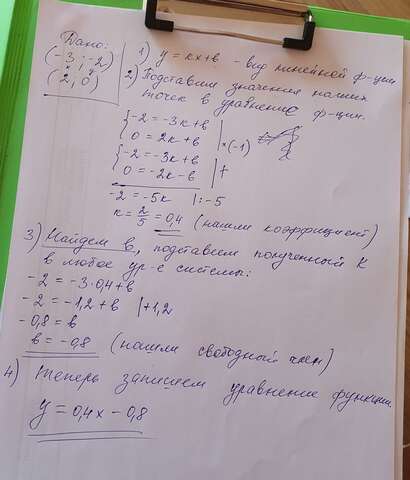 Дано:
(-3; -2)
x y
(2; 0)
1) y = kx+b - вид линейной ф-ции
2) Подставим значения наших
точек в уравнение ф-ции.
{-2 = -3k+b
0 = 2k+b |×(-1)
{-2 = -3k+b
0 = -2k-b |+
-2 = -5k |:-5
k = 2/5 = 0,4 (нашли коэффициент)
3) Найдем b, подставяем полученный k
в любое ур-е системы:
-2 = -3·0,4+b
-2 = -1,2+b |+1,2
-0,8 = b
b = -0,8 (нашли свободный член)
4) Теперь запишем уравнение функции.
y = 0,4x - 0,8